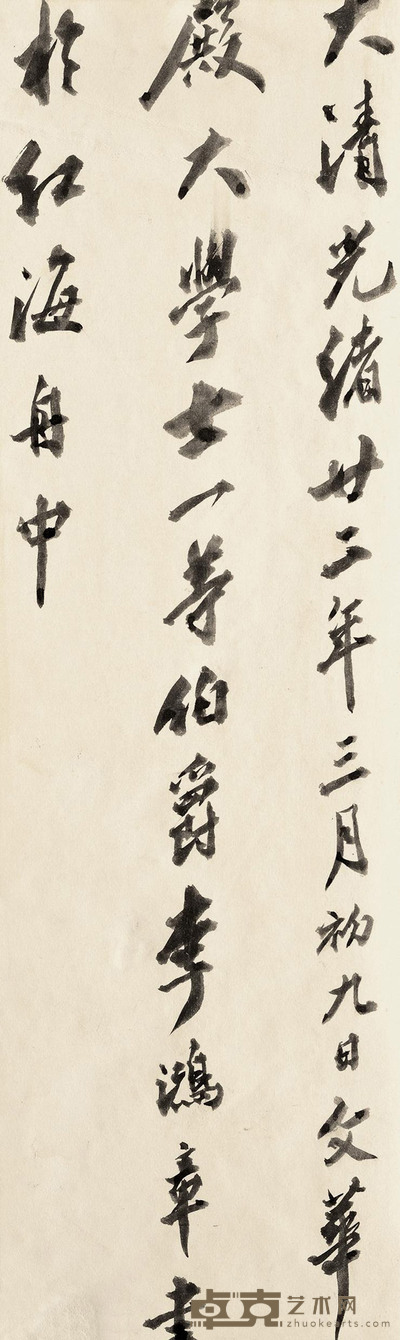 大清光緒廿二年三月初九日文華
殿大學士一等伯爵李鴻章書
於紅海舟中
卓克艺术网
zhuokearts.com